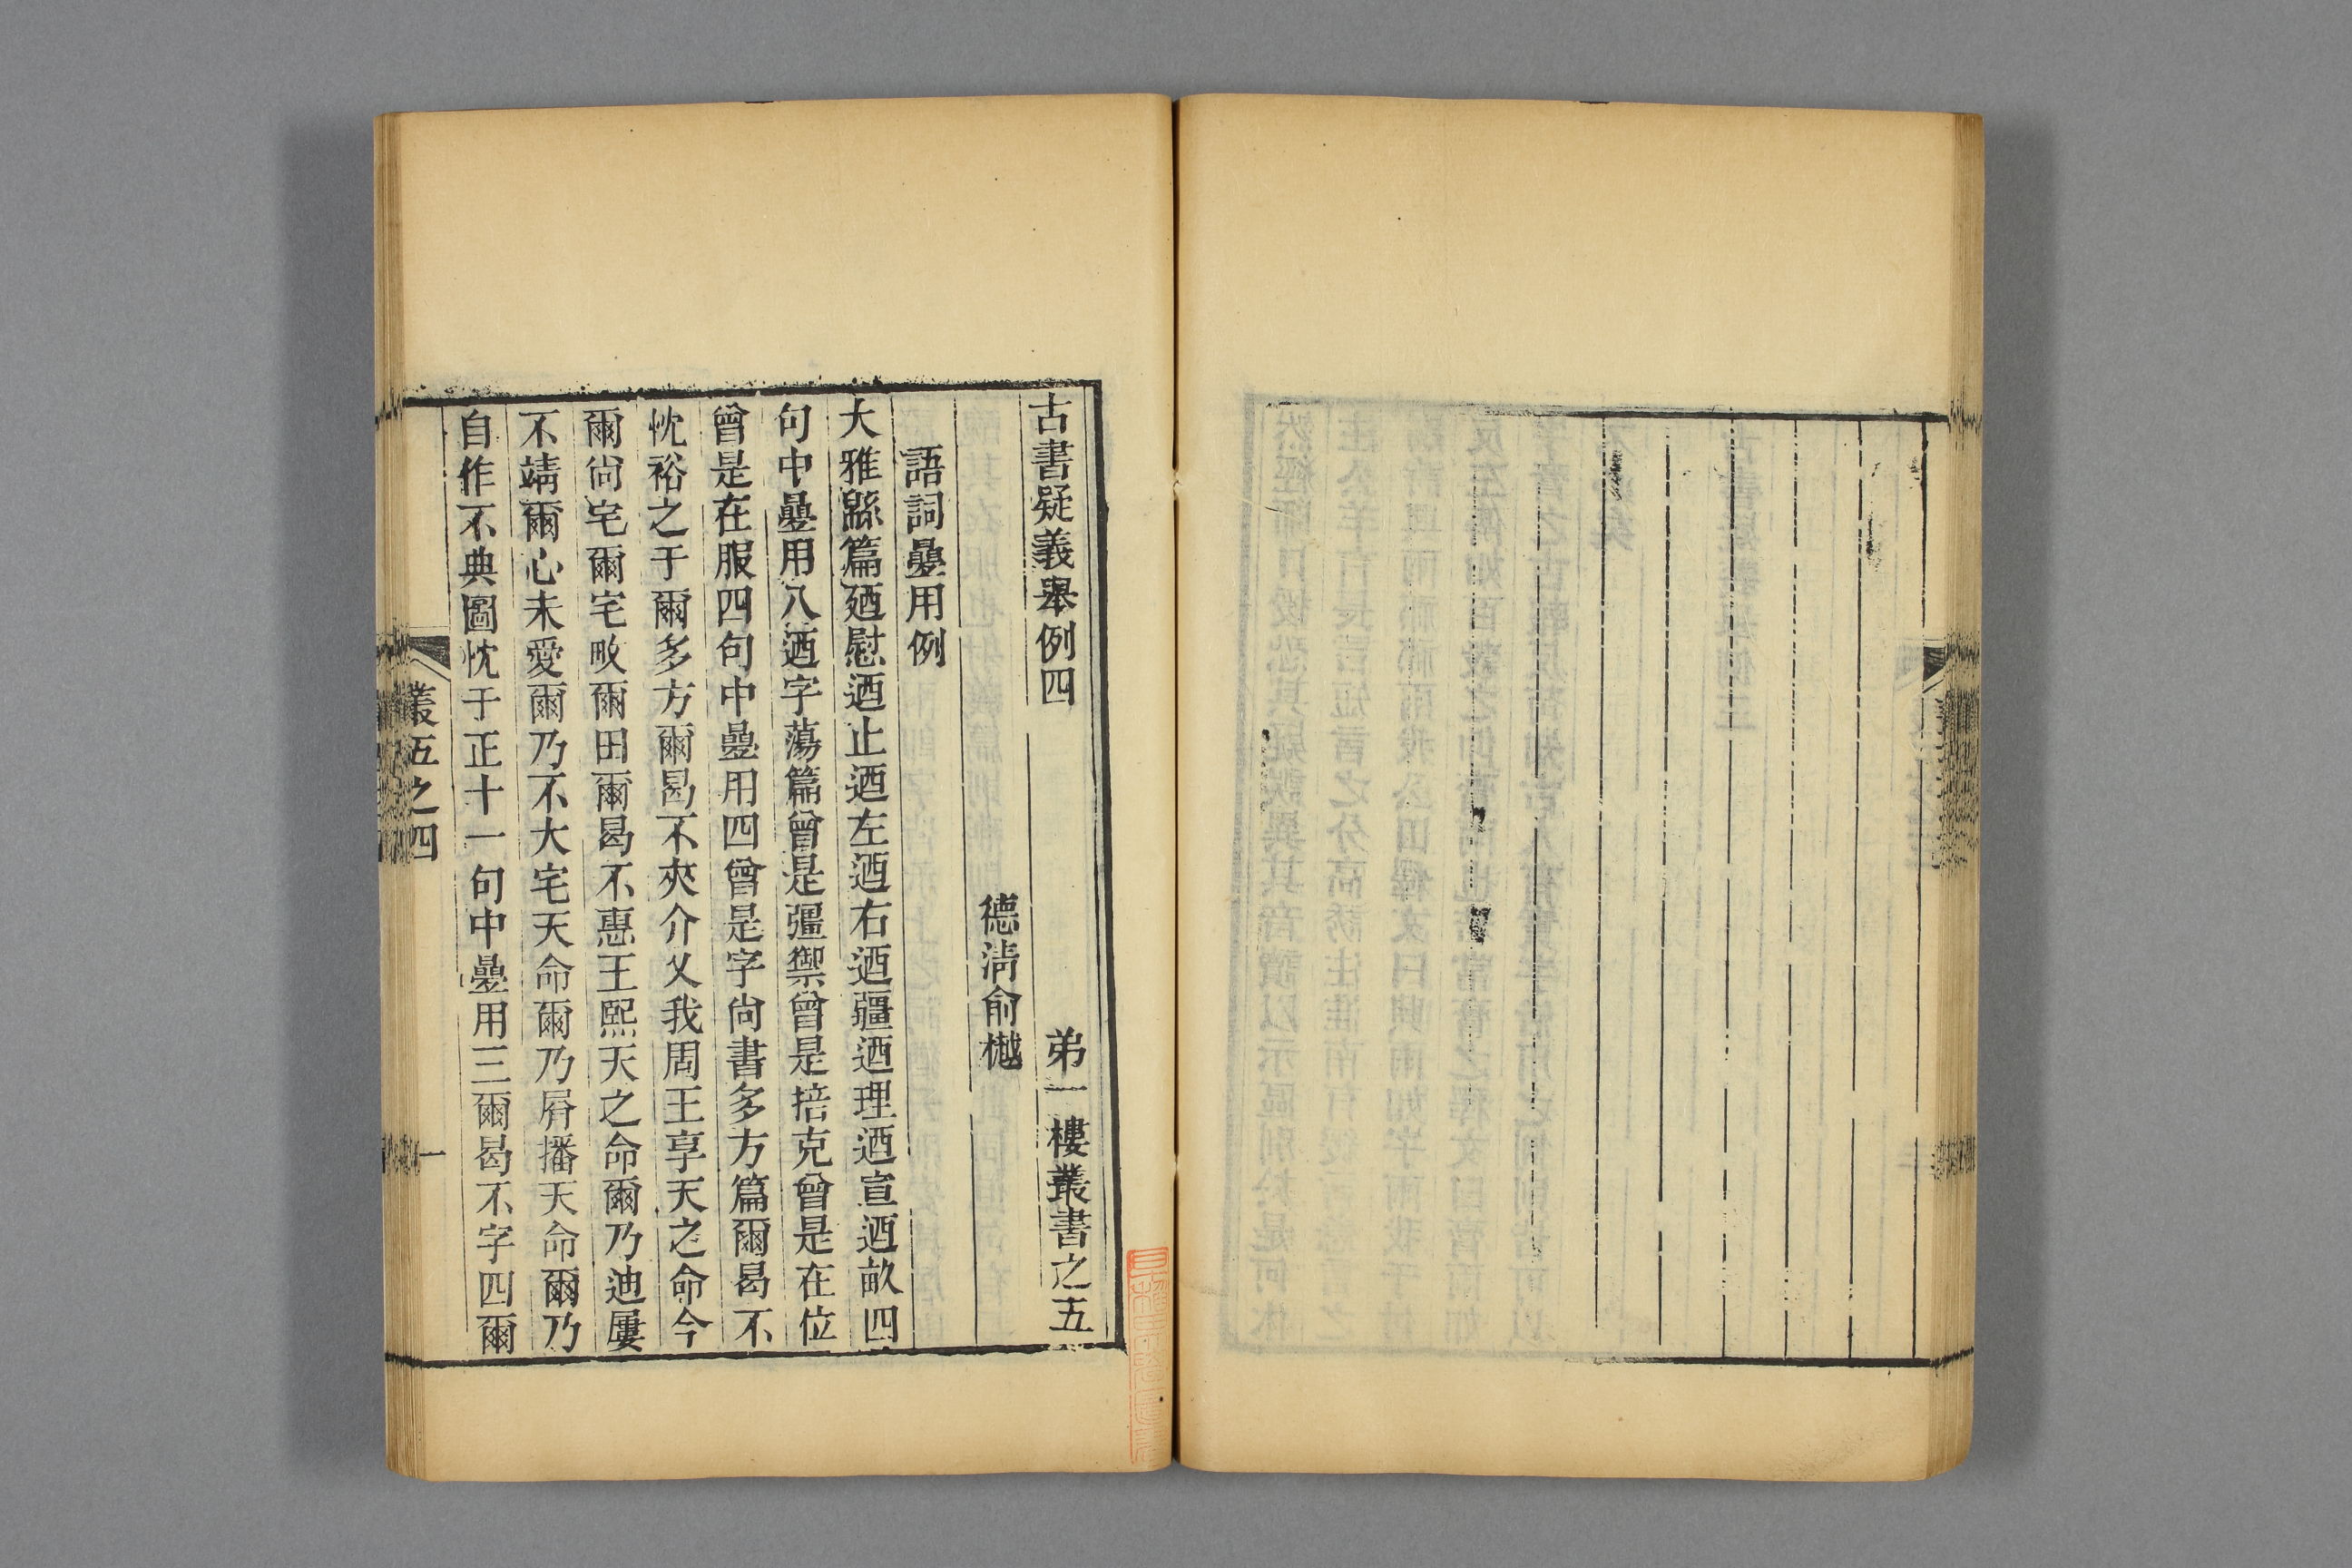 古書疑義舉例四　弟一樓叢書之五
德清俞樾
語詞疊用例
大雅緜篇廼慰迺止迺左迺右迺疆迺理迺宣迺畝四
句中疊用八迺字蕩篇曾是彊禦曾是掊克曾是在位
曾是在服四句中疊用四曾是字尙書多方篇爾曷不
忱裕之于爾多方爾曷不夾介乂我周王享天之命今
爾尙宅爾宅畋爾田爾曷不惠王熙天之命爾乃迪屢
不靖爾心未愛爾乃不大宅天命爾乃屑播天命爾乃
自作不典圖忱于正十一句中疊用三爾曷不字四爾
叢五之四
一